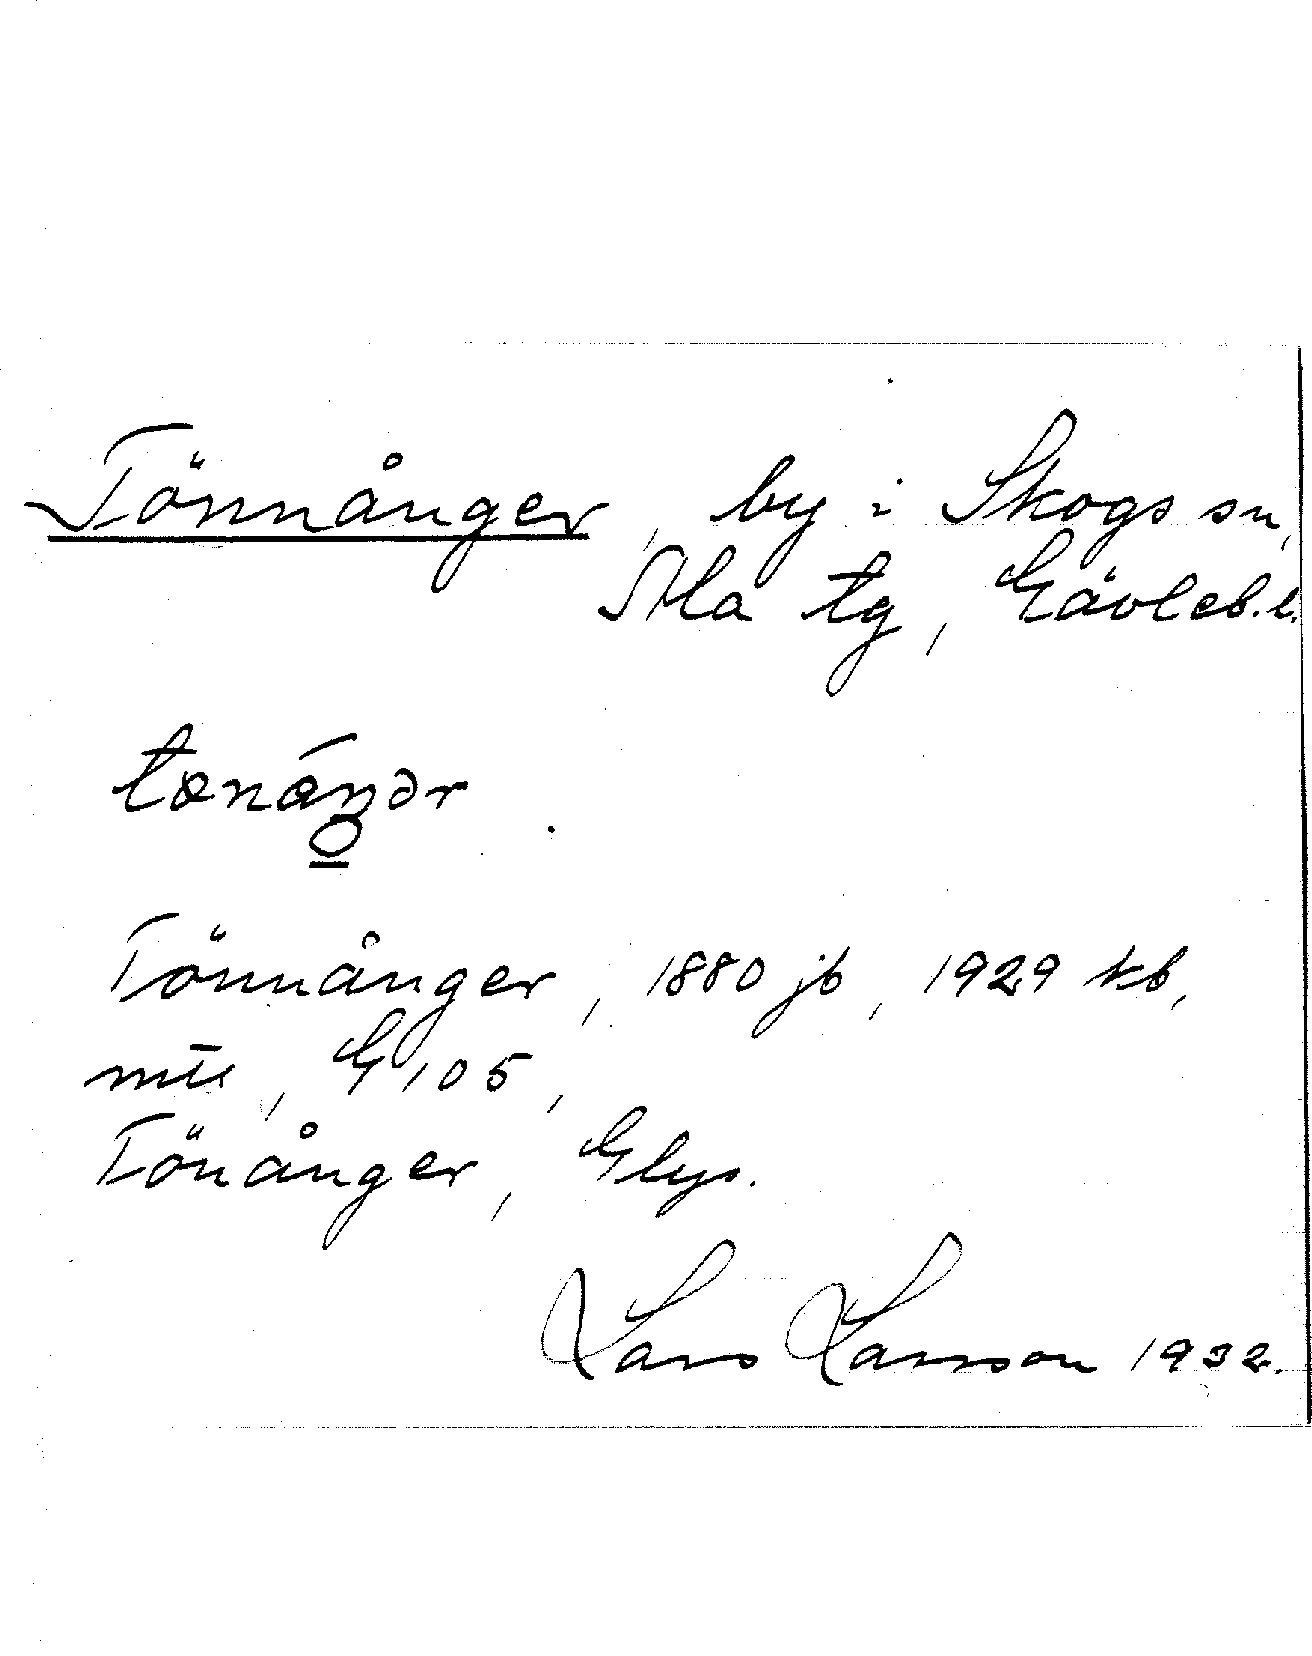 Tönnånger, by i Skogs sn,
Ala tg, Gävleb. l.
tönáŋər
Tönnånger, 1880 jb, 1929 kb,
mtl, G 105,
Tönånger, Glys.
Lars Larsson 1932.